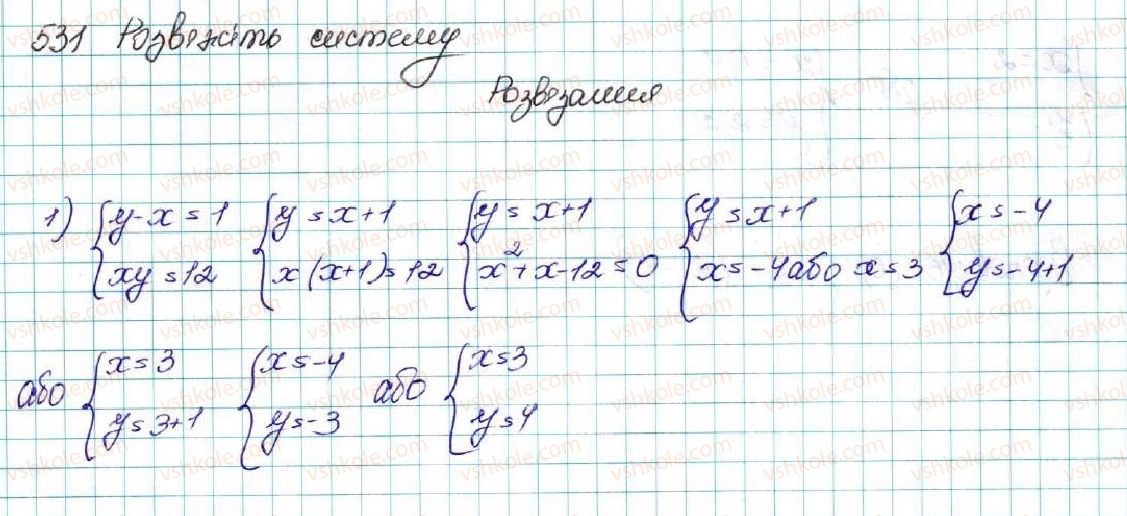 531 Розвяжіть систему
Розвязання
1) { y-x=1 xy=12 { y=x+1 x(x+1)=12 { y=x+1 x²+x-12=0 { y=x+1 x=-4 або x=3 { x=-4 y=-4+1
або { x=3 y=3+1 { x=-4 y=-3 або { x=3 y=4
vshkole.com